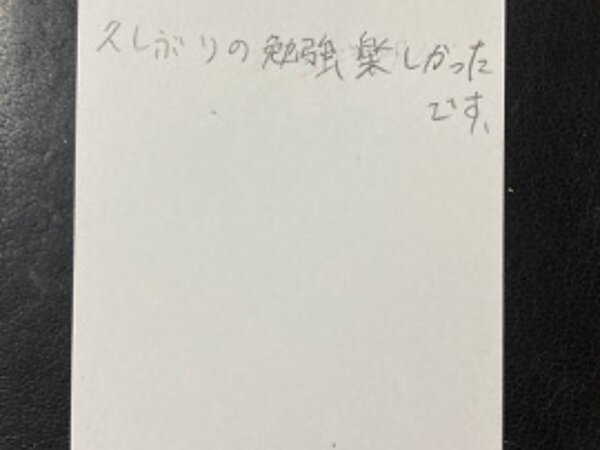 久しぶりの勉強楽しかった
です、